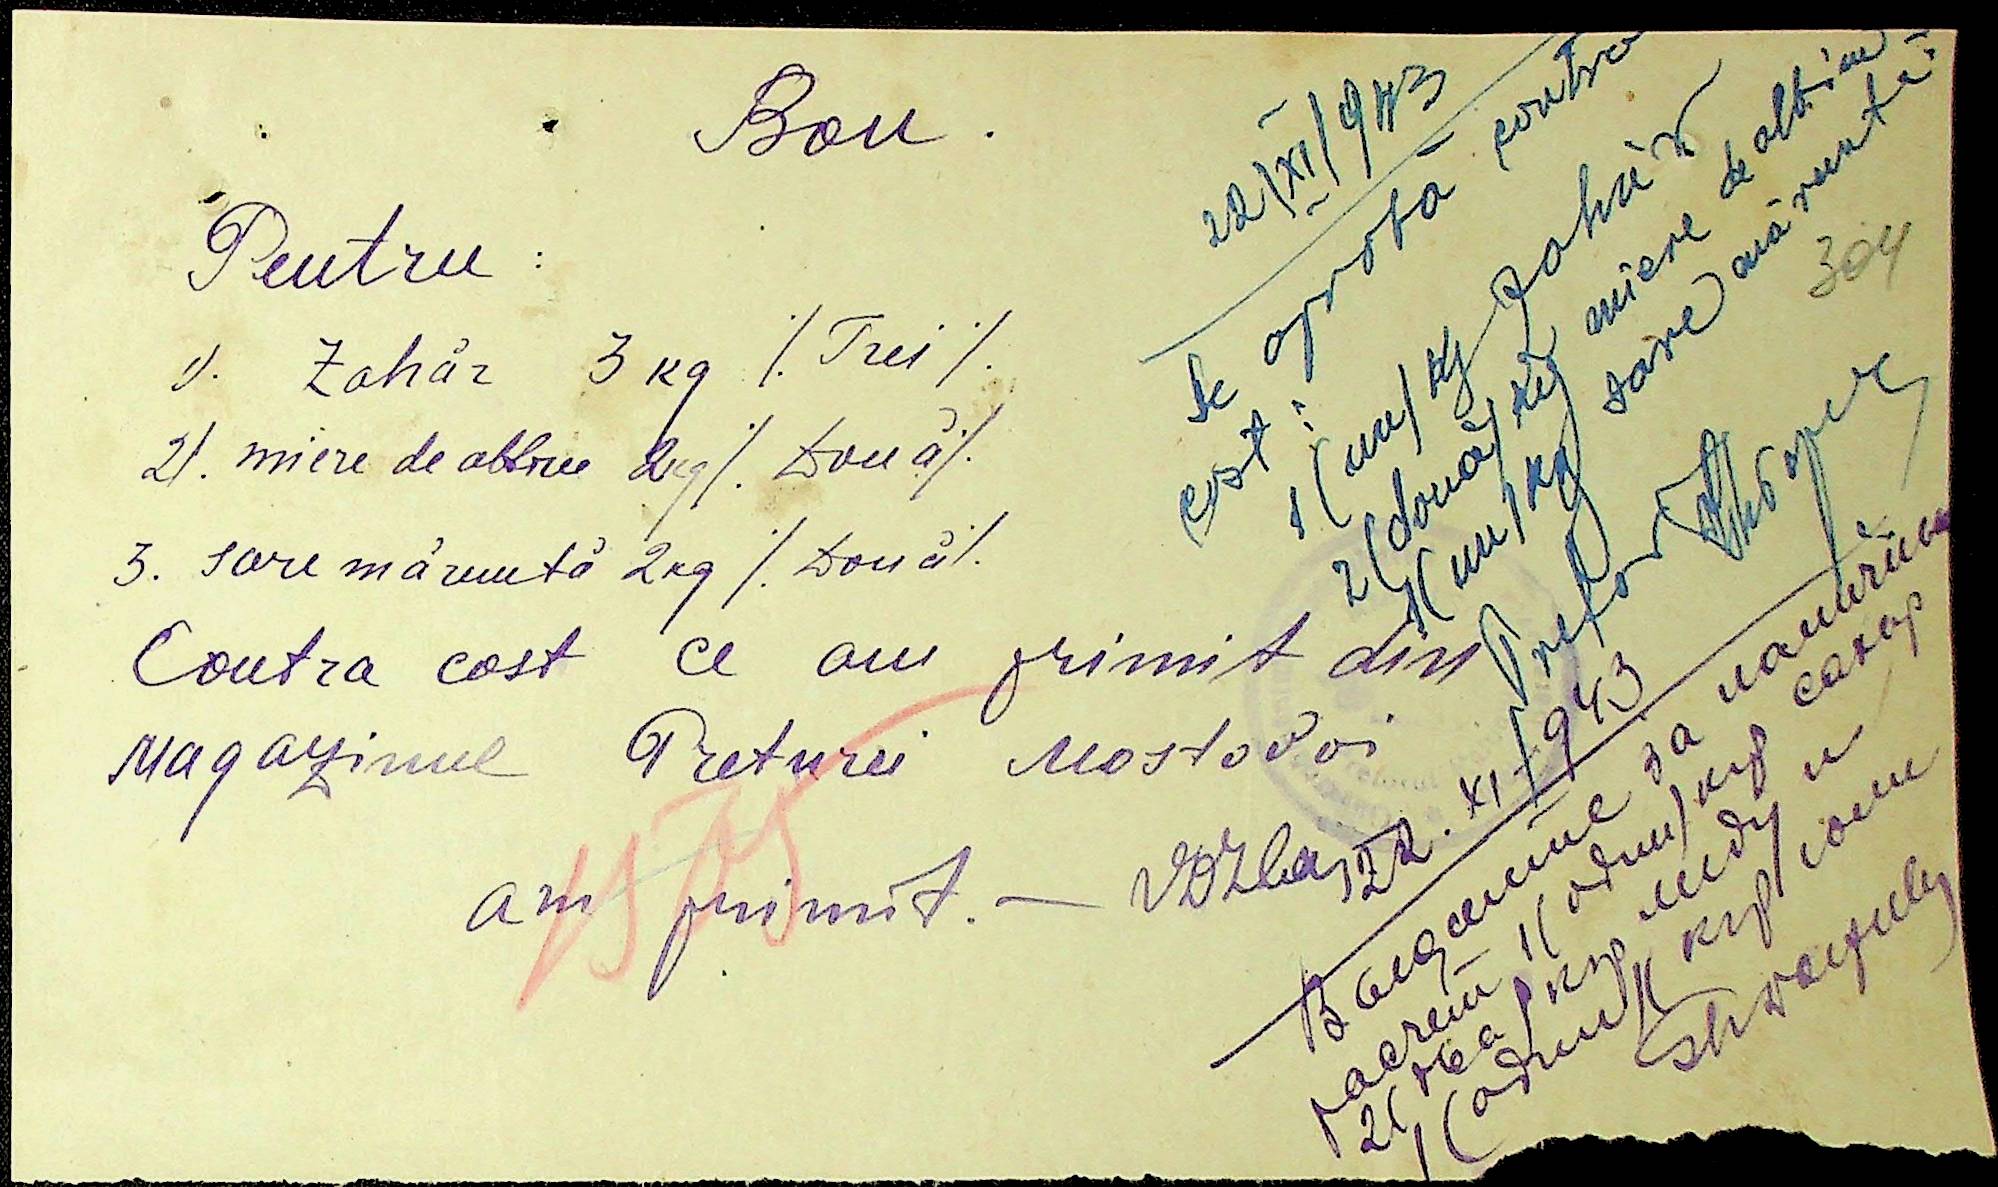 Bon.
Pentru:
1). Zahăr 3 kg /. Trei /.
2/. miere de albine 2kg /. Două /.
3. sare măruntă 2kg /. Două /.
Contra cost ce am primit din
Magazinul Preturei Mostovoi
am primit. —
22. XI 943
1575
22/XI/943
Se aprobă contra
cost:
1(un) kg zahăr
2(două) kg miere de albine
1(un) kg sare măruntă
Pretor
304
за наличний
1(один) клґ сахар
2( два) клґ меду и
1(один) клґ соли